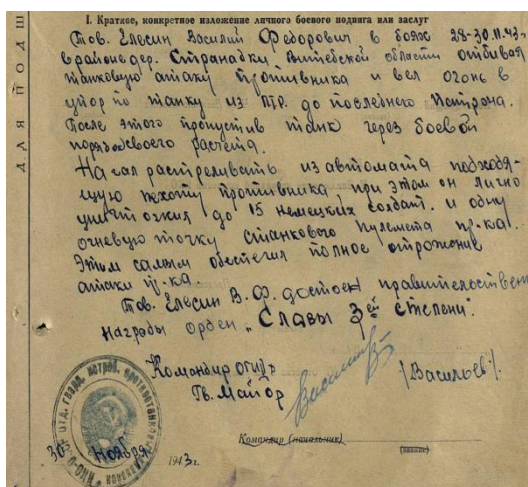 ДЛЯ ПОДШ
I. Краткое, конкретное изложение личного боевого подвига или заслуг
Тов. Елесин Василий Федорович в боях 28-30.11.43г
в районе дер. Странадки Витебской области отбивая
танковую атаку противника и вел огонь в
упор по танку из ПТР. до последнего патрона.
После этого пропустив танк через боевой
порядок своего расчета.
Начал растреливать из автомата подходя-
щую пехоту противника при этом он лично
уничтожил до 15 немецких солдат. и одну
огневую точку станкового пулемета пр-ка.
Этим самым обеспечил полное отражение
атаки пр-ка.
Тов. Елесин В.Ф. достоен правительствен
награды орден „Славы 3ей степени".
Командир
Гв. Майор /Васильев/.
Командир (начальник)
(звание)
30 Ноября 1943 г.
ОТД. ГВАРД. ИСТРЕБ. ПРОТИВОТАНКОВ
НКО-СССР